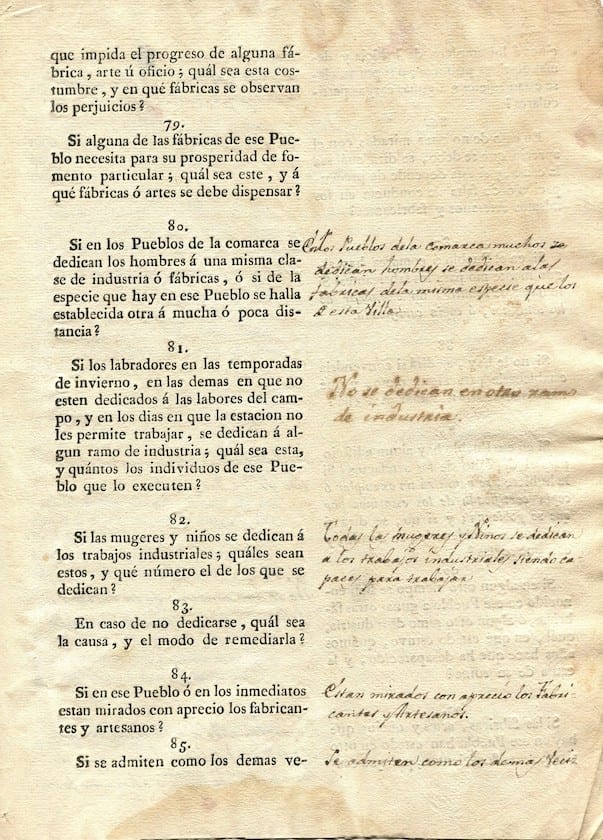 que impida el progreso de alguna fá-
brica, arte ú oficio; quál sea esta cos-
tumbre, y en qué fábricas se observan
los perjuicios?
79.
Si alguna de las fábricas de ese Pue-
blo necesita para su prosperidad de fo-
mento particular; quál sea este, y á
qué fábricas ó artes se debe dispensar?
80.
Si en los Pueblos de la comarca se
dedican los hombres á una misma cla-
se de industria ó fábricas, ó si de la
especie que hay en ese Pueblo se halla
establecida otra á mucha ó poca dis-
tancia?
Pueblos dela comarca muchos se
dedican hombres se dedican alas
fabricas dela misma especie que los
esta Villa
81.
Si los labradores en las temporadas
de invierno, en las demas en que no
esten dedicados á las labores del cam-
po, y en los dias en que la estacion no
les permite trabajar, se dedican á al-
gun ramo de industria; quál sea esta,
y quántos los individuos de ese Pue-
blo que lo executen?
No se dedican en otro ramo
de industria.
82.
Si las mugeres y niños se dedican á
los trabajos industriales; quáles sean
estos, y qué número el de los que se
dedican?
Todas las mugeres y Niños se dedican
a los trabajos industriales siendo ca-
paces para trabajar
83.
En caso de no dedicarse, quál sea
la causa, y el modo de remediarla?
84.
Si en ese Pueblo ó en los inmediatos
estan mirados con aprecio los fabrican-
tes y artesanos?
Estan mirados con aprecio los Fabri-
cantes y Artesanos.
85.
Si se admiten como los demas ve-
Se admiten como los demas Veci